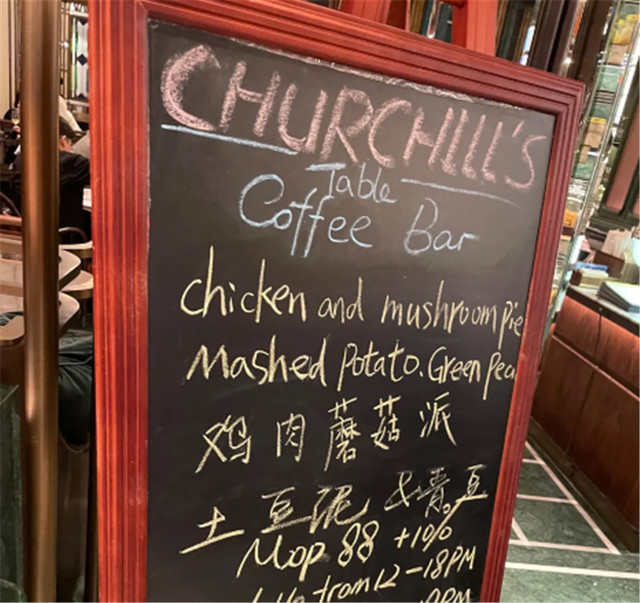 CHURCHILL'S
Table
Coffee Bar
chicken and mushroom pie
Mashed Potato. Green Pea
鸡肉蘑菇派
土豆泥 & 青豆
Mop 88 +10%
from 12-18PM